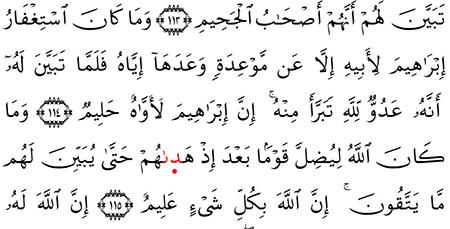 تَبَيَّنَ لَهُمۡ أَنَّهُمۡ أَصۡحَٰبُ ٱلۡجَحِيمِ ١١٣ وَمَا كَانَ ٱسۡتِغۡفَارُ
إِبۡرَٰهِيمَ لِأَبِيهِ إِلَّا عَن مَّوۡعِدَةٖ وَعَدَهَآ إِيَّاهُ فَلَمَّا تَبَيَّنَ لَهُۥٓ
أَنَّهُۥ عَدُوّٞ لِّلَّهِ تَبَرَّأَ مِنۡهُۚ إِنَّ إِبۡرَٰهِيمَ لَأَوَّٰهٌ حَلِيمٞ ١١٤ وَمَا
كَانَ ٱللَّهُ لِيُضِلَّ قَوۡمَۢا بَعۡدَ إِذۡ هَدَىٰهُمۡ حَتَّىٰ يُبَيِّنَ لَهُم
مَّا يَتَّقُونَۚ إِنَّ ٱللَّهَ بِكُلِّ شَيۡءٍ عَلِيمٌ ١١٥ إِنَّ ٱللَّهَ لَهُۥ